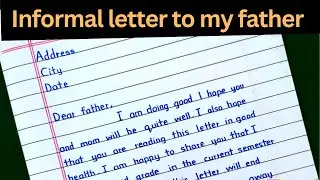 Informal letter to my father
Address
City
Date
Dear father,
I am doing good I hope you
and mom will be quite well. I also hope
that you are reading this letter in good
health. I am happy to share you that I
grade in the current semester
this letter will end
away